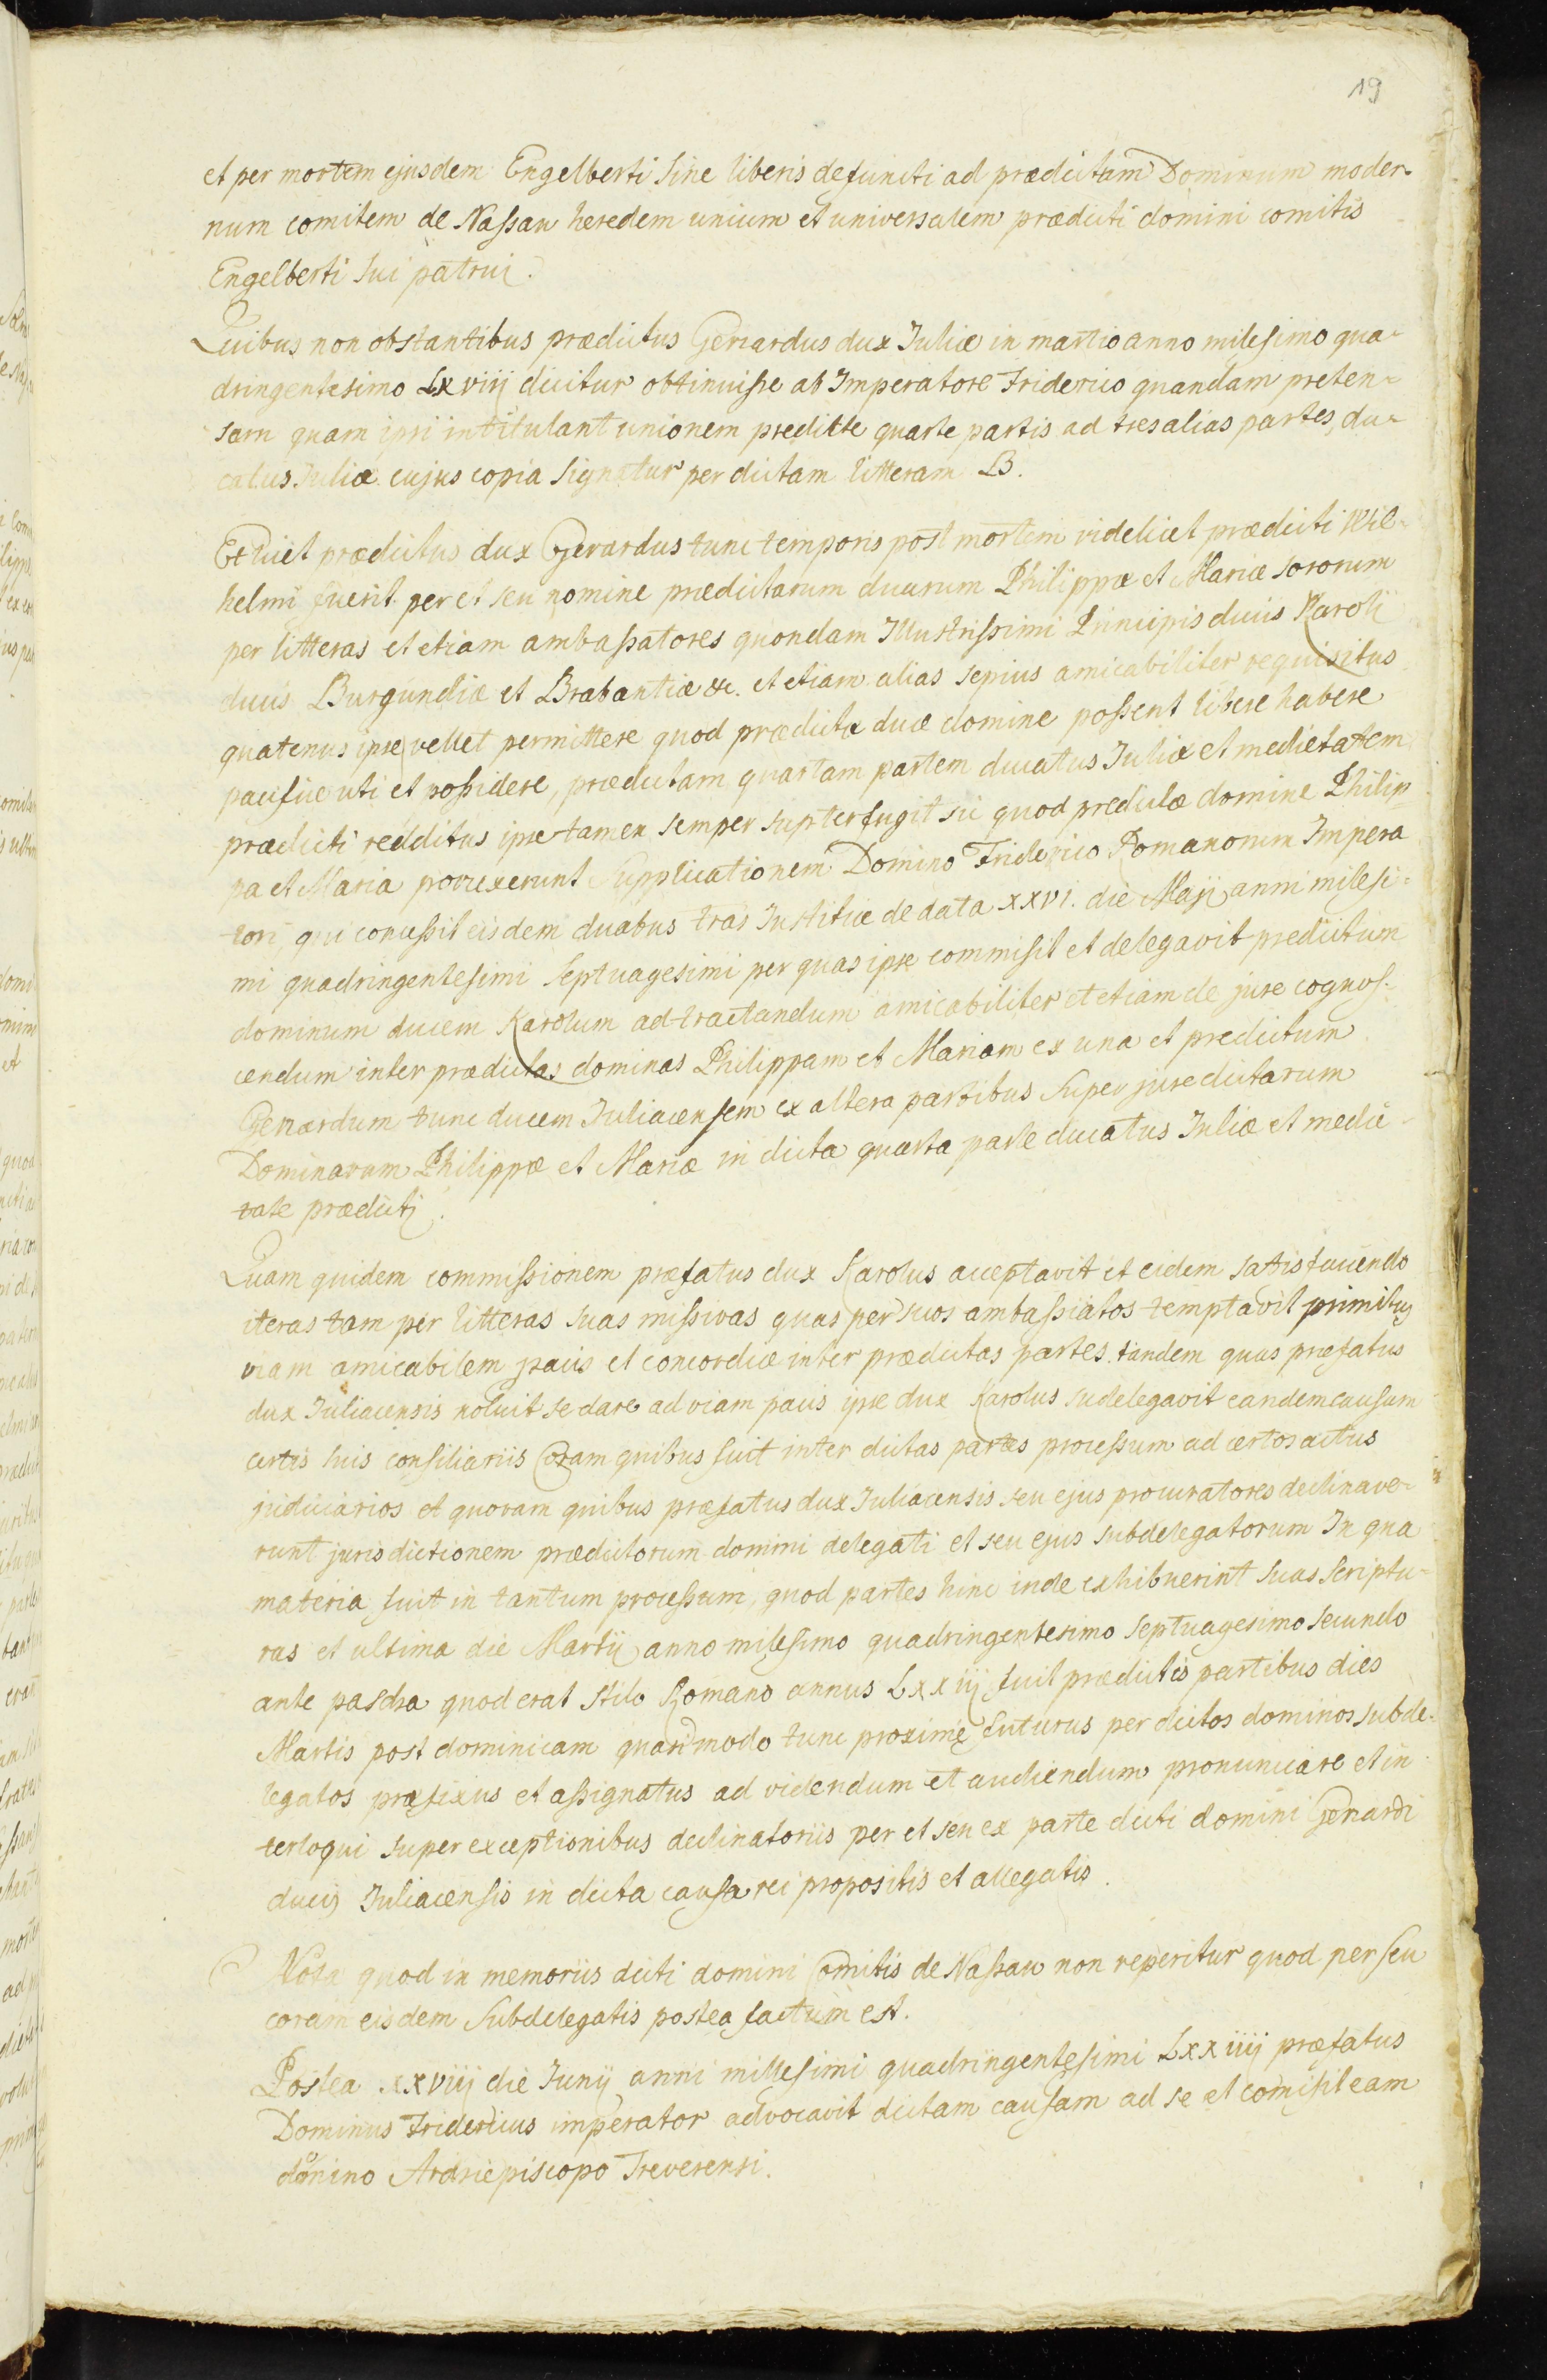 19
et per mortem ejusdem Engelberti sine liberis defuncti ad prædictam Dominum moder-
num comitem de Nassau heredem unium et universalem prædicti domini comitis
Engelberti sui patrui.
Quibus non obstantibus prædictus Gerardus dux Juliæ in martio anno milesimo qua-
dringentesimo Lxviiij dicitur obtinuisse ab Imperatore Friderico quandam preten-
sam quam ipsi intitulant unionem predicte quarte partis ad tres alias partes, du-
catus Juliæ cujus copia signatur per dictam litteram B.
Et licet prædictus dux Gerardus tunc temporis post mortem videlicet prædicti Wil-
helmi fuerit per et seu nomine prædictarum duarum Philippæ et Mariæ sororum
per litteras et etiam ambassatores quondam Illustrissimi Principis ducis Karoli
ducis Burgundiæ et Brabantiæ &c. et etiam alias sepius amicabiliter requisitus
quatenus ipse vellet permittere quod prædictæ duæ domine possent libere habere
pacifice uti et possidere, prædictam quartam partem ducatus Juliæ et medietatem
prædicti redditus ipse tamen semper supterfugit sic quod predictæ domine Philip-
pa et Maria porrexerunt Supplicationem Domino Friderico Romanorum Impera
tori, qui concessit eisdem duabus tras Justitiæ de data xxvi. die Maji anni milesi-
mi quadringentesimi septuagesimi per quas ipse commisit et delegavit predictum
dominum ducem Karolum ad tractandum amicabiliter et etiam de jure cognos-
cendum inter prædictas dominas Philippam et Mariam ex una et predictum
Gerardum tunc ducem Juliacensem ex altera partibus super jure dictarum
Dominarum Philippæ et Mariæ in dicta quarta parte ducatus Juliæ et medie-
tate prædicti.
Quam quidem commissionem præfatus dux Karolus acceptavit et eidem satisfaciendo
iteras tam per litteras suas missivas quas per suos ambassiatos temptavit primitus
viam amicabilem pacis et concordiæ inter prædictas partes. tandem quas præfatus
dux Juliacensis noluit se dare ad viam pacis ipse dux Karolus sudelegavit eandem causam
certis suis consiliariis Coram quibus fuit inter dictas partes processum ad certos actus
judiciarios et quoram quibus præfatus dux Juliacensis seu ejus procuratores declinave-
runt jurisdictionem prædictorum domini delegati et seu ejus subdelegatorum In qua
materia fuit in tantum processum, quod partes hinc inde exhibuerint suas scriptu-
ras et ultima die Martij anno milesimo quadringentesimo septuagesimo secundo
ante pascha quod erat stilo Romano annus Lxxiij fuit prædictis partibus dies
Martis post dominicam quasimodo tunc proxime futurus per dictos dominos subde-
legatos præfixus et assignatus ad videndum et audiendum pronunciare et in-
terloqui super exceptionibus declinatoriis per et seu ex parte dicti domini Gerardi
ducis Juliacensis in dicta causa rei propositis et allegatis.
Nota quod in memoriis dicti domini Comitis de Nassau non reperitur quod per seu
coram eisdem Subdelegatis postea factum est.
Postea xxviij die Junij anni millesimi quadringentesimi Lxxiiij præfatus
Dominus Fridericus imperator advocavit dictam causam ad se et comisit eam
domino Archiepiscopo Treverensi.